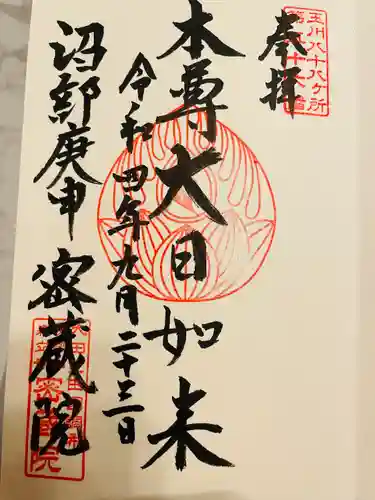 奉拝
玉川八十八ヶ所
本尊大日如来
令和四年九月二十三日
沼部庚申
密蔵院